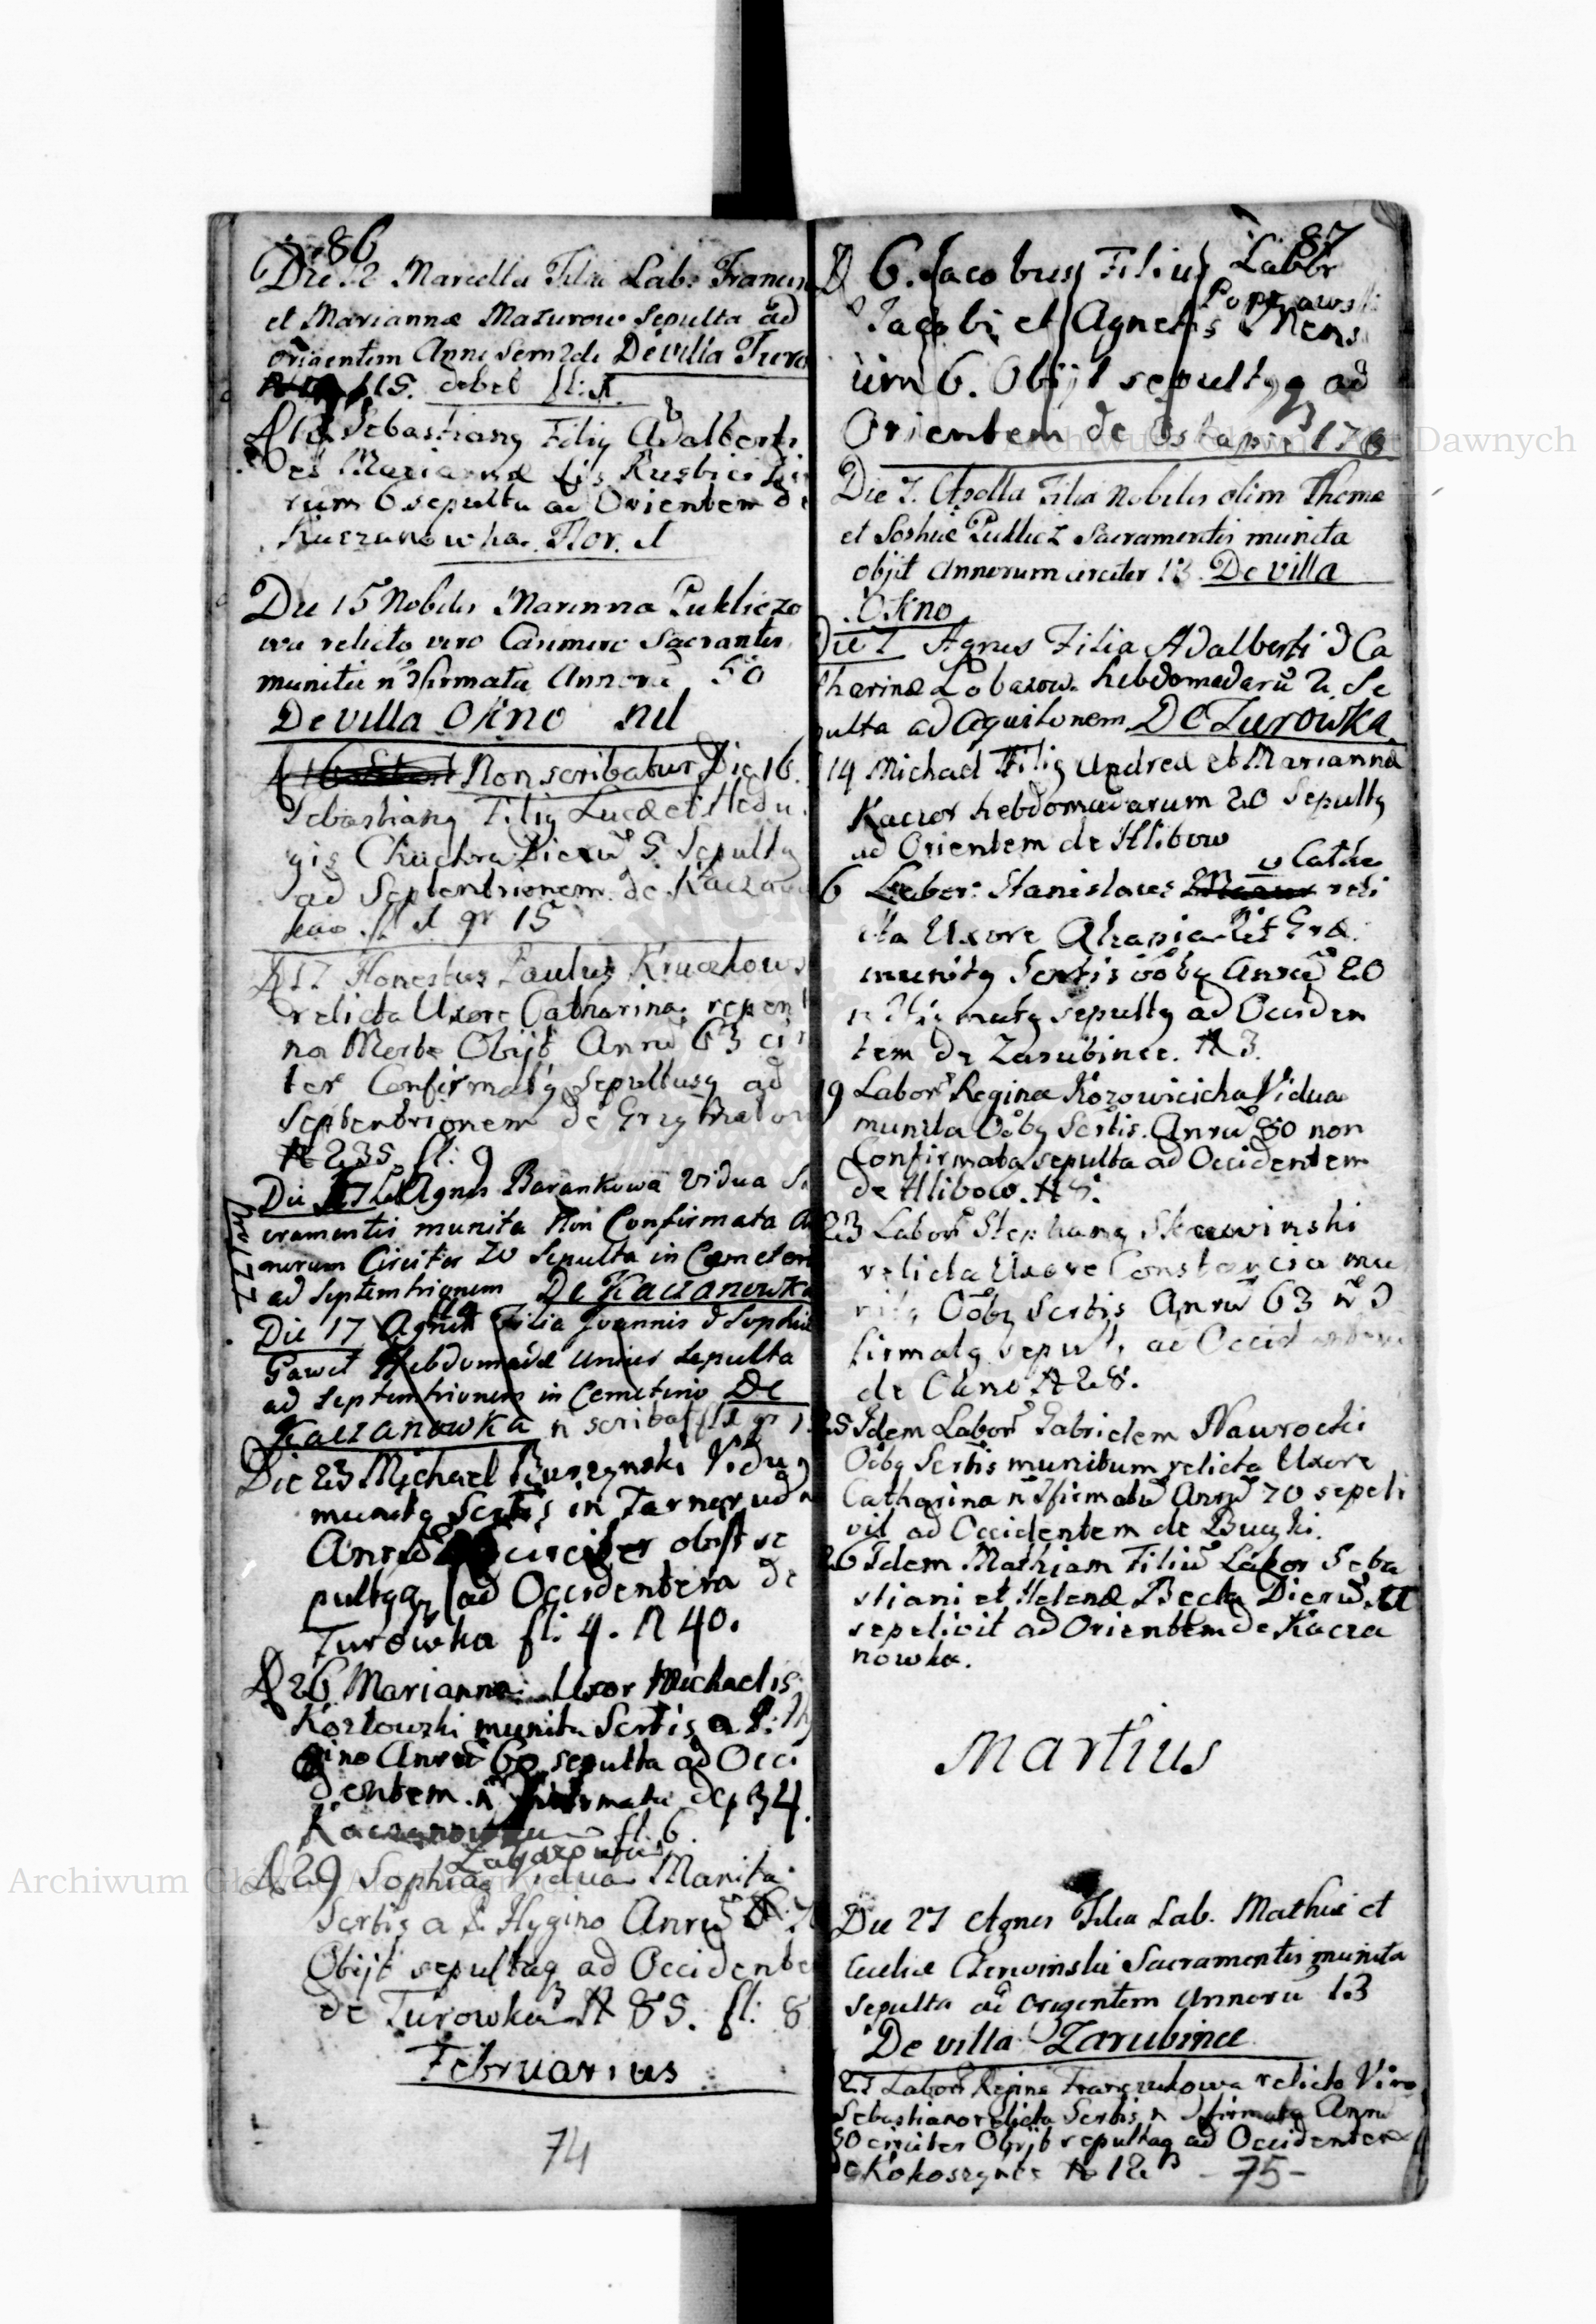 86
Die 12 Marcella Filia Lab: Francis
et Mariannæ Mazurow Sepulta ad
orientem Anni Sem2di De villa Turo
fl5. debet fl: 1.
D 13 Sebastiang Filig Adalberti
et Mariannæ Lis Rusbici Die
rum 6 sepulta ad Orientem de
Kaczanowka. Flor. 1
Die 15 Nobilis Marianna Pukliczo
wa relicto viro Casimiro Sacrantis
munita n Ɔfirmata Annorū 50
De villa Okno nil
Non scribatur Die 16
Sebastiang Filig Lucæ et Hedu
gis Chuchra Dierū 5 Sepultg
ad Septentrionem de Kaczanow
kao fl 1 gr 15
D 17 Honestus Paulus Kruczkows
relicta Uxore Catharina repent
na Morbo Obijt Anrū 63 cir
ter Confirmatg Sepultusq ad
Septentrionem de Grzymalow
N 235 fl: 9
Die 17 Agnes Barankowa Vidua Sa
cramentis munita Non Confirmata An
norum Circiter 70 Sepulta in Cæmeteri
ad Septemtrionem De Kaczanowka
Die 17 Agnes Filia Joannis & Sophiæ
Gawet Hebdomadæ unius Sepulta
ad Septemtrionem in Cemeterio De
Kaczanowka n scribat fl 1 gr 1
Die 23 Michael Buszynski Vidug
munitg Scrtis in Tarnoruda
Anrū circiter obijt se
pultgq ad Occidentem de
Turowka fl: 4. N 40.
D 26 Marianna Uxor Michaelis
Kozlowski munita Scrtis a P: Hy
gino Anrū 60 sepulta ad Occi
dentem n Ɔfirmata de N 34.
Kaczanowka fl: 6.
Lagazowa
D 29 Sophia Vidua Munita
Scrtis a P. Hygino Anrū 70
Obijt sepultaq ad Occidente
de Turowka N 85. fl: 8
Februarius
74
87
D 6. Jacobus Filius Labor
Poprawski
Jacobi et Agnetis Mens
ium 6. Obijt sepultgq ad
Orientem de Ostapie N 170
Die 7. Apolla Filia Nobilis olim Thomæ
et Sophiæ Puklicz Sacramentis munita
obijt Annorum circiter 13. De villa
Okno
Die 7 Agnes Filia Adalberti & Ca
tharinæ Lobazow hebdomadarū 2. Se
pulta ad aquilonem De Turowka
14 Michael Filig Andreæ et Mariannæ
Kaczor hebdomadarum 20 Sepultg
ad Orientem de Hlibow
v Cathe
6 Labor: Stanislaus reli
cta Uxore
munitg Scrtis oobg Anrū 20
n Ɔfirmatg sepultg ad Occiden
tem de Zarubince. N 3.
19 Labor Regina Kozowicicha Vidua
munita Oobg Scrtis. Anrū 80 non
Confirmata sepulta ad Occidentem
de Hlibow. N 8.
23 Labor Stephang Skawinski
relicta Uxore Constancia mu
nitg Oobg Scrtis Anrū 63 n Ɔ
firmatg sepult. ad Occidentem
de Okno N 28.
25 Idem Labor Gabrielem Nawrocki
Oobg Scrtis munitum relicta Uxore
Catharina n Ɔfirmatū Anrū 70 sepeli
vit ad Occidentem de Buczki.
26 Idem Mathiam Filiū Labor Seba
stiani et Helenæ Becta Dierū
sepelivit ad Orientem de Kacza
nowka.
Martius
Die 27 Agnes Filia Lab. Mathiæ et
Ceciliæ Czerwinskie Sacramentis munita
Sepulta ad orientem Annorū 13
De villa Zarubince
27 Labor Regina Franczukowa relicto Viro
Sebastiano relicta Scrtis n Ɔfirmata Anrū
50 circiter Obijt sepultaq ad Occidentem
de Kokoszynce N 12 -75-
Archiwum Główne Akt Dawnych
Archiwum Główne Akt Dawnych